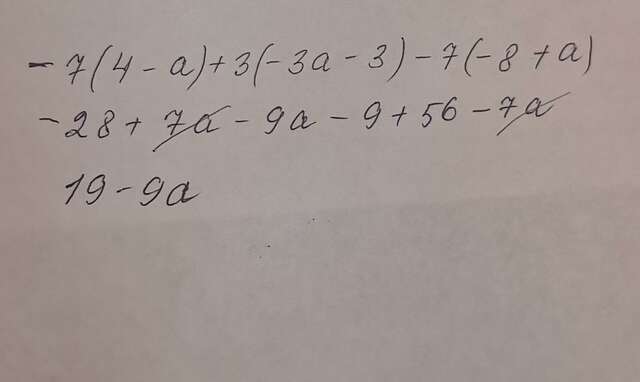 -7(4-a)+3(-3a-3)-7(-8+a)
-28+7a-9a-9+56-7a
19-9a